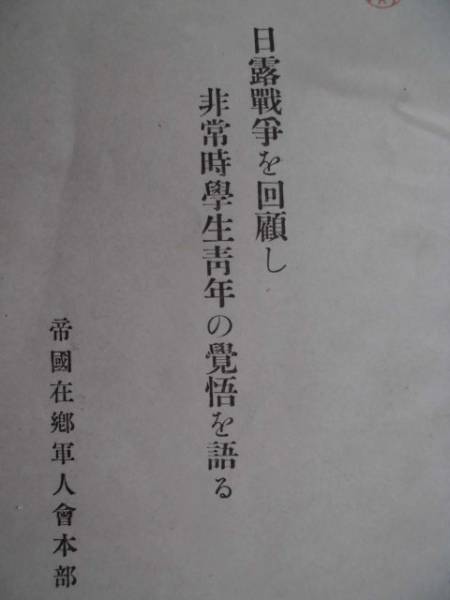 日露戰爭を回顧し
非常時學生靑年の覺悟を語る
帝國在鄕軍人會本部